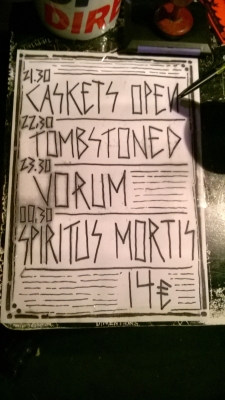 DIRE
21.30
CASKETS OPEN
22.30
TOMBSTONED
23.30
VORUM
00.30
SPIRITUS MORTIS
14€